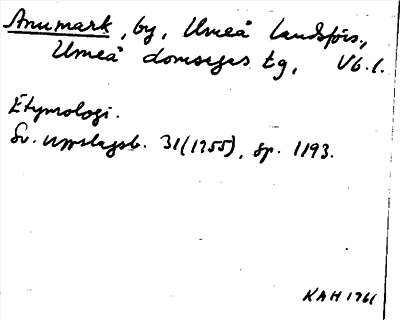 Anumark, by, Umeå landsförs.,
Umeå domsagas tg, Vb.l.
Etymologi.
Sv. uppslagsb. 31(1955), sp. 1193.
KAH 1961